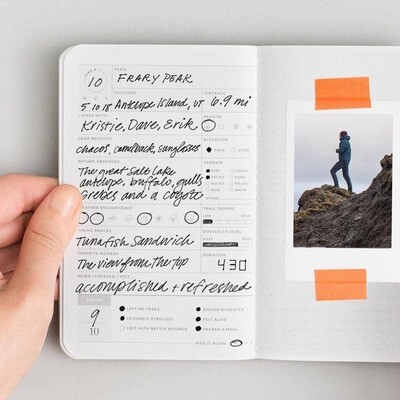 HIKE #
10
TRAIL
FRARY PEAK
LOCATION
DISTANCE
5 10 18 Antelope Island, UT 6.9 mi
HIKED WITH
SEASON
Kristie, Dave, Erik
GEAR BROUGHT
ELEVATION
chacos, camelback, sunglasses
GAIN
LOSS
NATURE OBSERVED
TERRAIN
The great Salt Lake
antelope, buffalo, gulls
Grebes and a coyote
DIRT
ROCKS
ROCKS
WATER
SNOW
WEATHER ENCOUNTERED
TRAIL TRAFFIC
HIKING SNACKS
DIFFICULTY LEVEL
Tunafish Sandwich
FAVORITE MOMENT
DURATION
The view from the top
4 30
WHEN I FINISHED I FELT
accomplished + refreshed
9
10
LEFT NO TRACE
LEISURELY STROLLED
LEFT WITH BATTLE WOUNDS
STAYED HYDRATED
FELT ALIVE
PACKED A MEAL
HIKE IT AGAIN